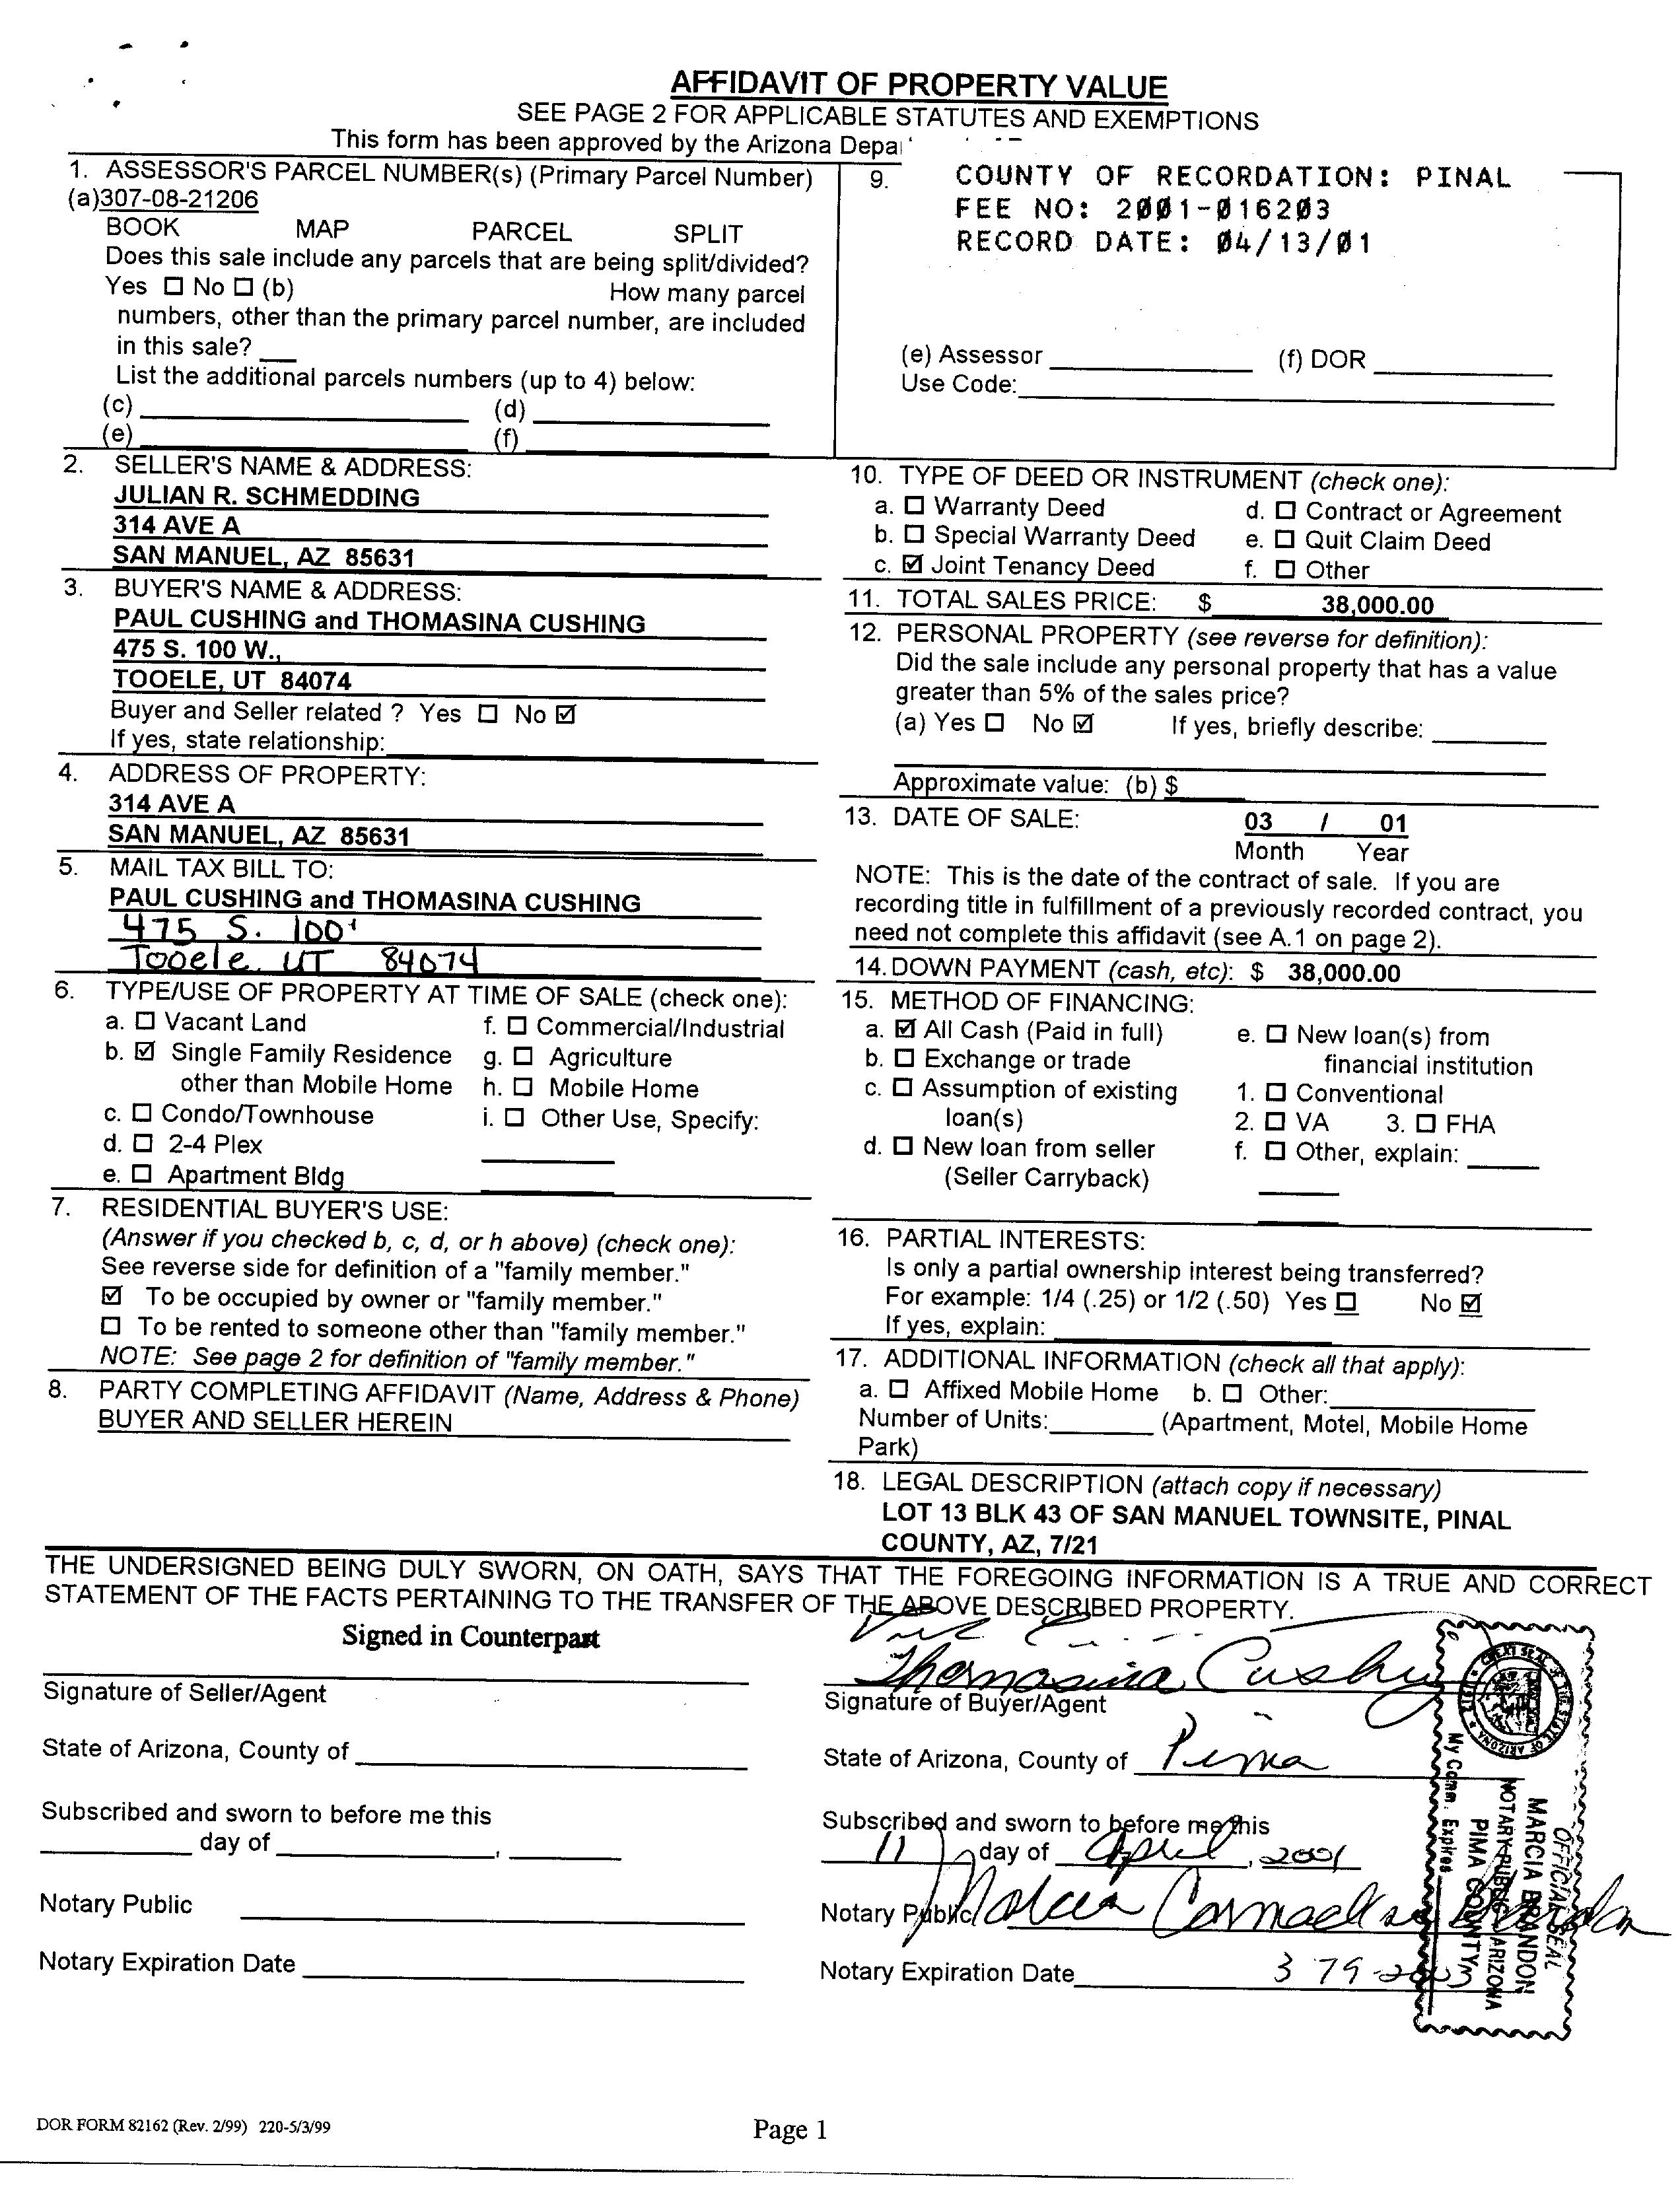 AFFIDAVIT OF PROPERTY VALUE
SEE PAGE 2 FOR APPLICABLE STATUTES AND EXEMPTIONS
This form has been approved by the Arizona Depa
1. ASSESSOR'S PARCEL NUMBER(s) (Primary Parcel Number)
(a)307-08-21206
BOOK MAP PARCEL SPLIT
Does this sale include any parcels that are being split/divided?
Yes ☐ No ☐ (b) How many parcel
numbers, other than the primary parcel number, are included
in this sale? __
List the additional parcels numbers (up to 4) below:
(c) (d)
(e) (f)
2. SELLER'S NAME & ADDRESS:
JULIAN R. SCHMEDDING
314 AVE A
SAN MANUEL, AZ 85631
3. BUYER'S NAME & ADDRESS:
PAUL CUSHING and THOMASINA CUSHING
475 S. 100 W.,
TOOELE, UT 84074
Buyer and Seller related ? Yes ☐ No ☑
If yes, state relationship:
4. ADDRESS OF PROPERTY:
314 AVE A
SAN MANUEL, AZ 85631
5. MAIL TAX BILL TO:
PAUL CUSHING and THOMASINA CUSHING
475 S. 100'
Tooele, UT 84074
6. TYPE/USE OF PROPERTY AT TIME OF SALE (check one):
a. ☐ Vacant Land f. ☐ Commercial/Industrial
b. ☑ Single Family Residence g. ☐ Agriculture
other than Mobile Home h. ☐ Mobile Home
c. ☐ Condo/Townhouse i. ☐ Other Use, Specify:
d. ☐ 2-4 Plex
e. ☐ Apartment Bldg
7. RESIDENTIAL BUYER'S USE:
(Answer if you checked b, c, d, or h above) (check one):
See reverse side for definition of a "family member."
☑ To be occupied by owner or "family member."
☐ To be rented to someone other than "family member."
NOTE: See page 2 for definition of "family member."
8. PARTY COMPLETING AFFIDAVIT (Name, Address & Phone)
BUYER AND SELLER HEREIN
9. COUNTY OF RECORDATION: PINAL
FEE NO: 2001-016203
RECORD DATE: 04/13/01
(e) Assessor (f) DOR
Use Code:
10. TYPE OF DEED OR INSTRUMENT (check one):
a. ☐ Warranty Deed d. ☐ Contract or Agreement
b. ☐ Special Warranty Deed e. ☐ Quit Claim Deed
c. ☑ Joint Tenancy Deed f. ☐ Other
11. TOTAL SALES PRICE: $ 38,000.00
12. PERSONAL PROPERTY (see reverse for definition):
Did the sale include any personal property that has a value
greater than 5% of the sales price?
(a) Yes ☐ No ☑ If yes, briefly describe:
Approximate value: (b) $
13. DATE OF SALE: 03 / 01
Month Year
NOTE: This is the date of the contract of sale. If you are
recording title in fulfillment of a previously recorded contract, you
need not complete this affidavit (see A.1 on page 2).
14. DOWN PAYMENT (cash, etc): $ 38,000.00
15. METHOD OF FINANCING:
a. ☑ All Cash (Paid in full) e. ☐ New loan(s) from
b. ☐ Exchange or trade financial institution
c. ☐ Assumption of existing 1. ☐ Conventional
loan(s) 2. ☐ VA 3. ☐ FHA
d. ☐ New loan from seller f. ☐ Other, explain:
(Seller Carryback)
16. PARTIAL INTERESTS:
Is only a partial ownership interest being transferred?
For example: 1/4 (.25) or 1/2 (.50) Yes ☐ No ☑
If yes, explain:
17. ADDITIONAL INFORMATION (check all that apply):
a. ☐ Affixed Mobile Home b. ☐ Other:
Number of Units: (Apartment, Motel, Mobile Home
Park)
18. LEGAL DESCRIPTION (attach copy if necessary)
LOT 13 BLK 43 OF SAN MANUEL TOWNSITE, PINAL
COUNTY, AZ, 7/21
THE UNDERSIGNED BEING DULY SWORN, ON OATH, SAYS THAT THE FOREGOING INFORMATION IS A TRUE AND CORRECT
STATEMENT OF THE FACTS PERTAINING TO THE TRANSFER OF THE ABOVE DESCRIBED PROPERTY.
Signed in Counterpart
Signature of Seller/Agent
State of Arizona, County of
Subscribed and sworn to before me this
day of ,
Notary Public
Notary Expiration Date
Thomasina Cushing
Signature of Buyer/Agent
State of Arizona, County of Pima
Subscribed and sworn to before me this
11 day of April, 2001
Notary Public
Notary Expiration Date
OFFICIAL SEAL
MARCIA BRANDON
NOTARY PUBLIC ARIZONA
PIMA COUNTY
My Comm. Expires
DOR FORM 82162 (Rev. 2/99) 220-5/3/99
Page 1